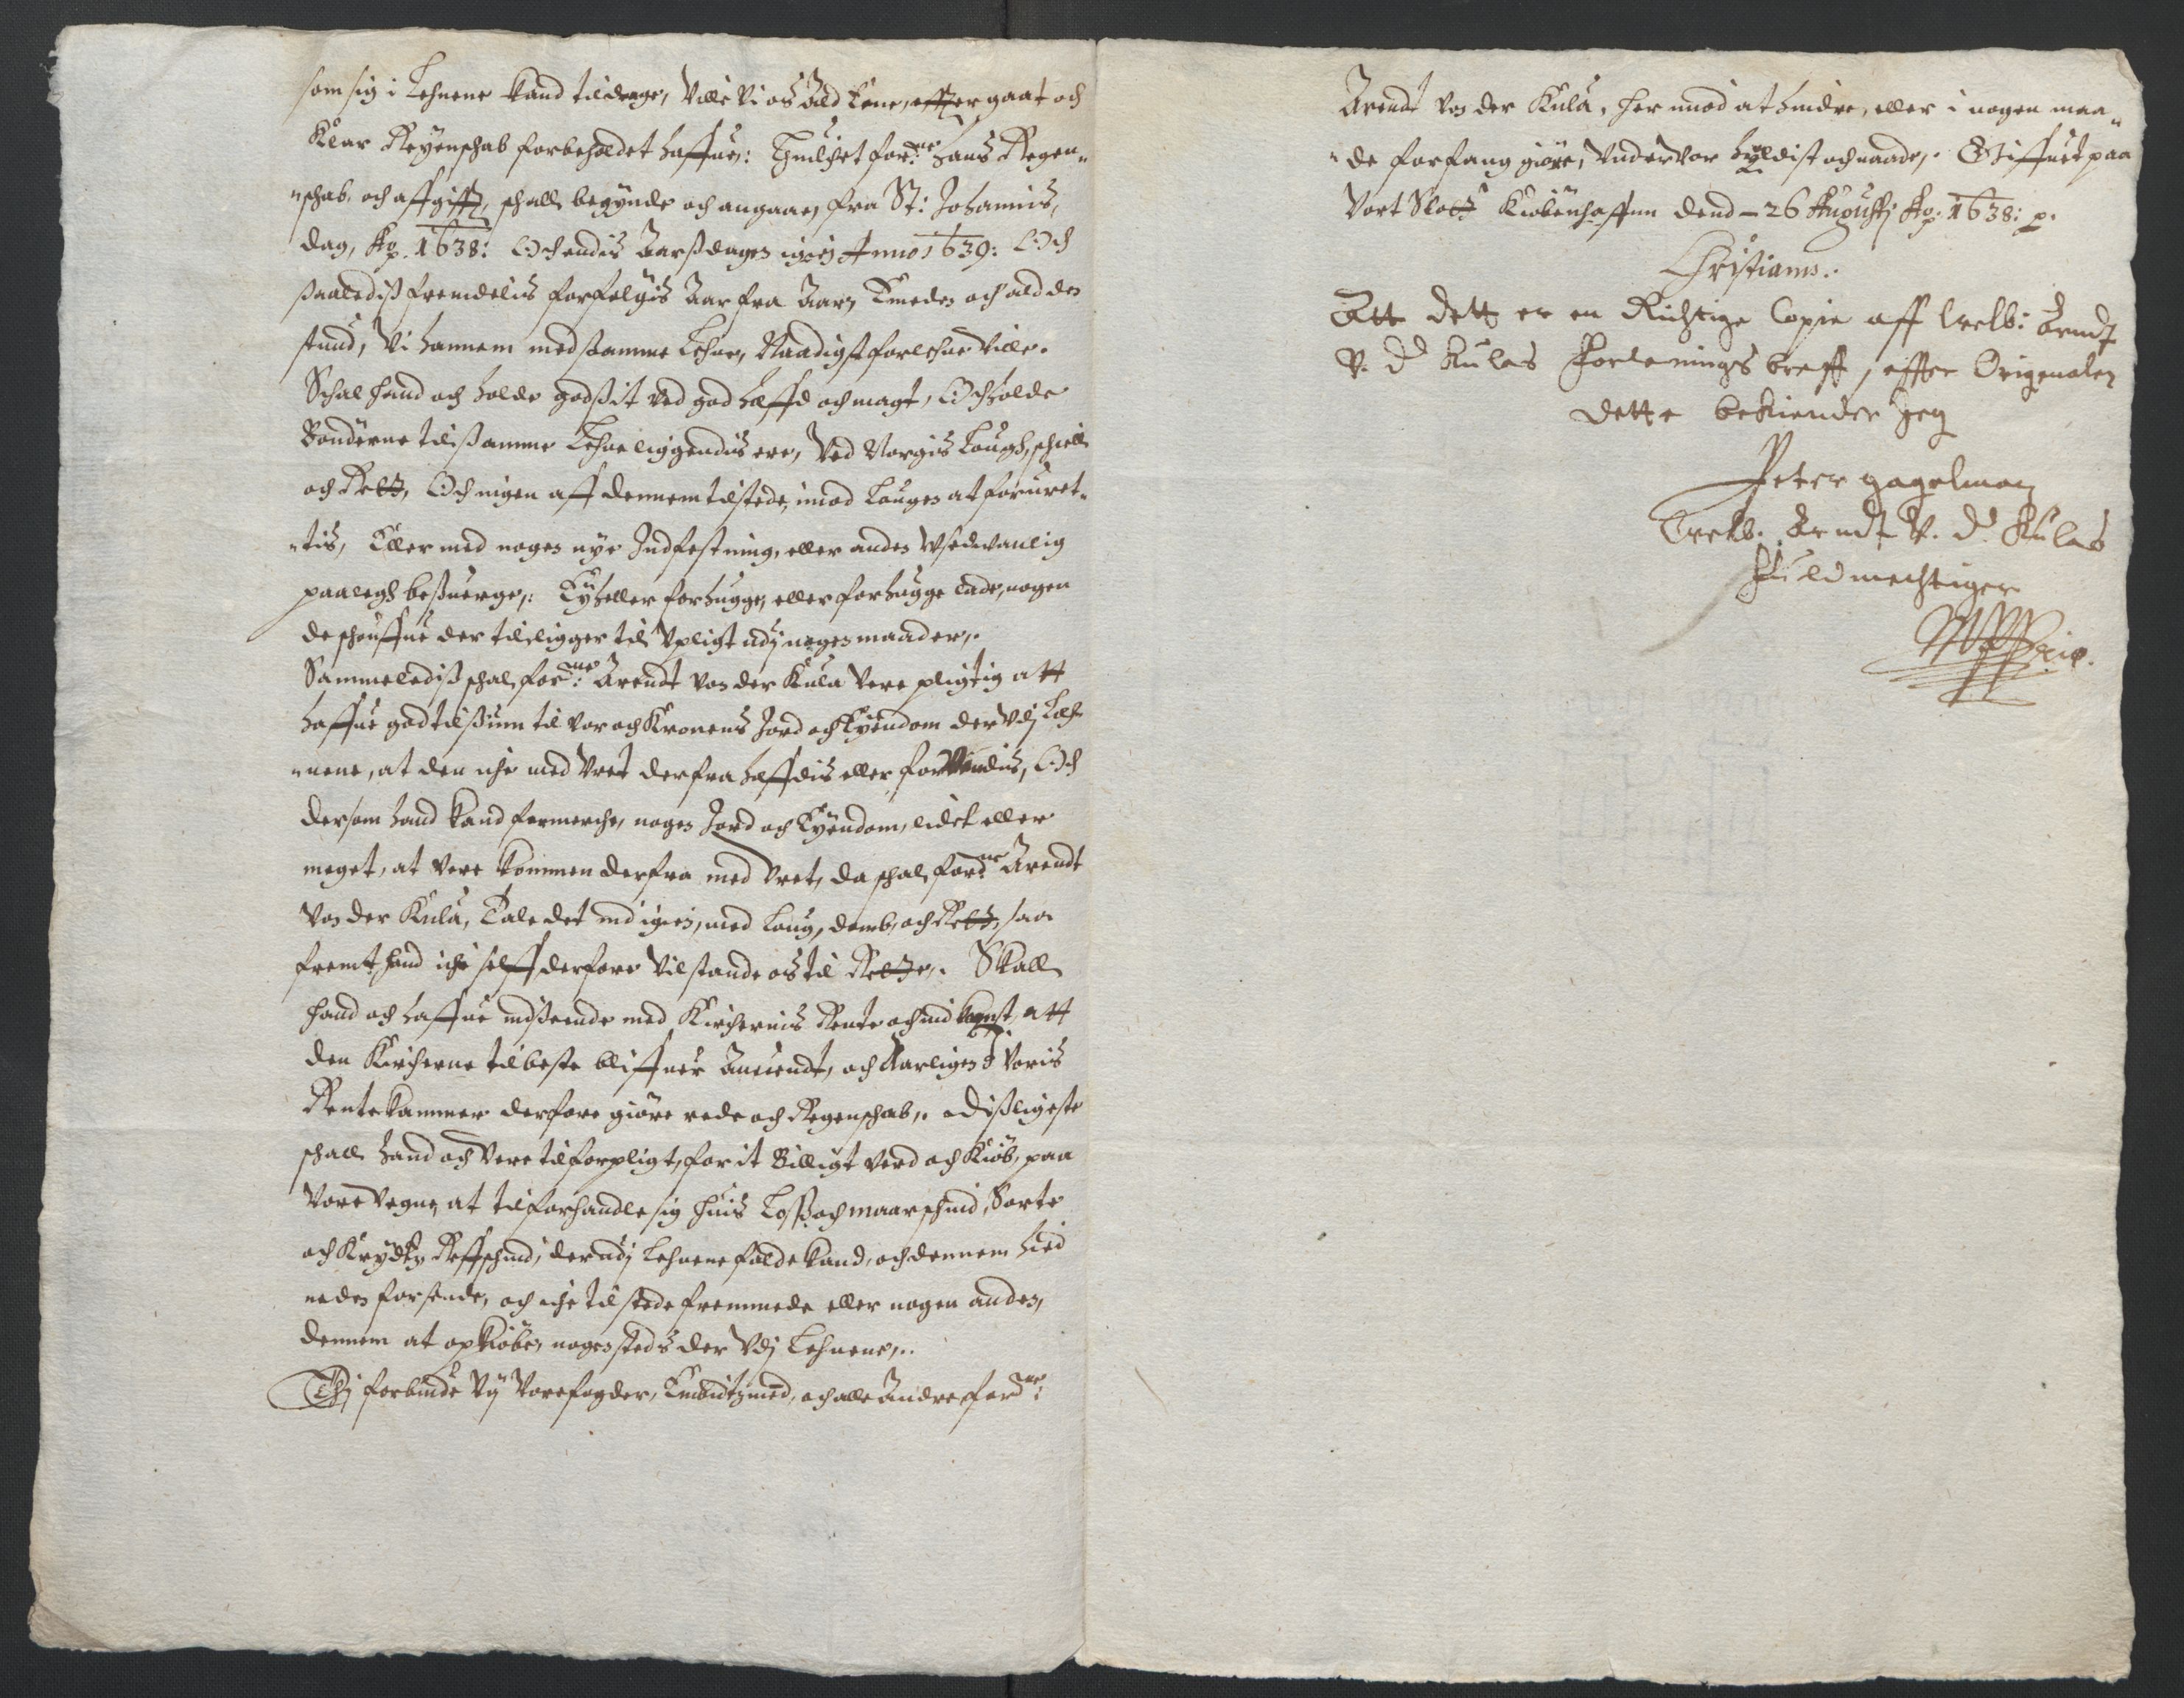 som sig i Lehnene kand tildrage, Ville Vi os Ald Eene, effter gaat och
Klar Regenschab forbeholdet haffue: Huilchet forne: hans Regen„
„schab och affgifft, schall begynde och angaae, fra St: Johannis,
dag, Ao. 1638: Och endis Aarsdagen igien Anno 1639: Och
saaledis fremdelis forfølgis Aar fra Aar, Emeden och ald den
stund, Vi hannem med samme Lehne, Naadigst forlehne Ville.
Schal hand och holde godsit ved god hæffd och magt, Och holde
Bønderne til samme Lehne liggendis ere, Ved Norgis Laugh, schiell
och Rett, Och ingen aff dennem tilstede, imod Lougen at foruret„
„tis, Eller med nogen nye Indfestning, eller anden Vsedvanlig
paalegh besuerge,: Ey heller forhugge, eller forhugge lade, nogen
de schouffue der til ligger til Vpligt udj nogen maader,.
Sammeledis schal forne: Arendt von der Kula Vere pligtig att
haffue god tilsiun til vor och Kronens Jord och Eyendom der Vdj Leh„
„nene, at den iche med Vret derfra hæffdis eller forVendis, Och
dersom hand kand formerche, nogen Jord och Eyendom, lidet eller
meget, at vere kommen derfra med Vret, da schal forne Arendt
Von der Kula, Tale det ind igien, med Loug, domb, och Rett, saa
fremt hand iche self derfore Vil stande os til Rette,. Skall
hand och haffue indseende med Kirchernis Rente och ind kompst, att
den Kircherne til beste bliffuer Anuendt, och Aarligen J Voris
Rentekammer derfore giøre rede och Regenschab,. Disligeste
schall hand och Vere tilforpligt, for it Billigt Verd och Kiøb, paa
Vore Vegne, at tilforhandle sig huis Losse och maarschind, Sorte
och Krydtz Reffschind, der udj Lehnene falde kand, och dennem hid
neden forsende, och iche til stede fremmede eller nogen anden,
dennem at opkiøbe, nogensteds der Vdj Lehnene,..
Thj forbiude Vy Vore fogder, Embitzmend, och alle Andre forne:
Arendt von der Kula, her imod at hindre, eller i nogen maa„
„de forfang giøre, Vnder Vor hyldist och naade,. Giffuet paa
Vort Slott Kiøbenhaffun dend – 26 Augusti Ao. 1638: p.
Christianus.
Att dett er en Richtige Copie aff Welb: Arndt
V. D. Kulas Forlenings breff, effter Origenalen
dette bekiender Jeg
Peter gagelman
Welb. Arndt V. D. Kulas
fuldmechtiger